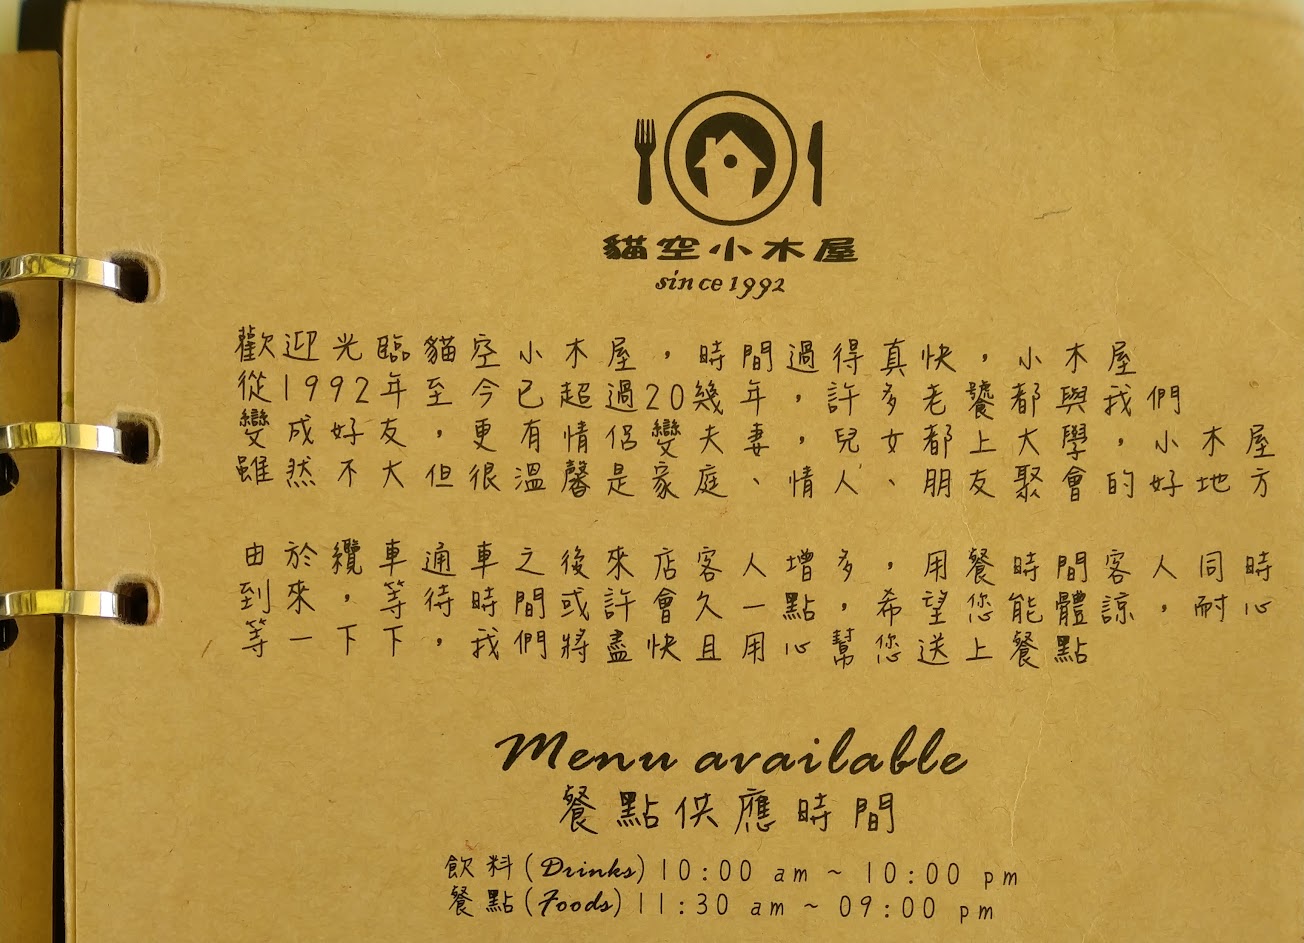 貓空小木屋
since 1992
歡迎光臨貓空小木屋，時間過得真快，小木屋
從1992年至今已超過20幾年，許多老饕都與我們
變成好友，更有情侶變夫妻，兒女都上大學，小木屋
雖然不大但很溫馨是家庭、情人、朋友聚會的好地方
由於纜車通車之後來店客人增多，用餐時間客人同時
到來，等待時間或許會久一點，希望您能體諒，耐心
等一下下，我們將盡快且用心幫您送上餐點
Menu available
餐點供應時間
飲料(Drinks)10:00 am ~ 10:00 pm
餐點(Foods)11:30 am ~ 09:00 pm